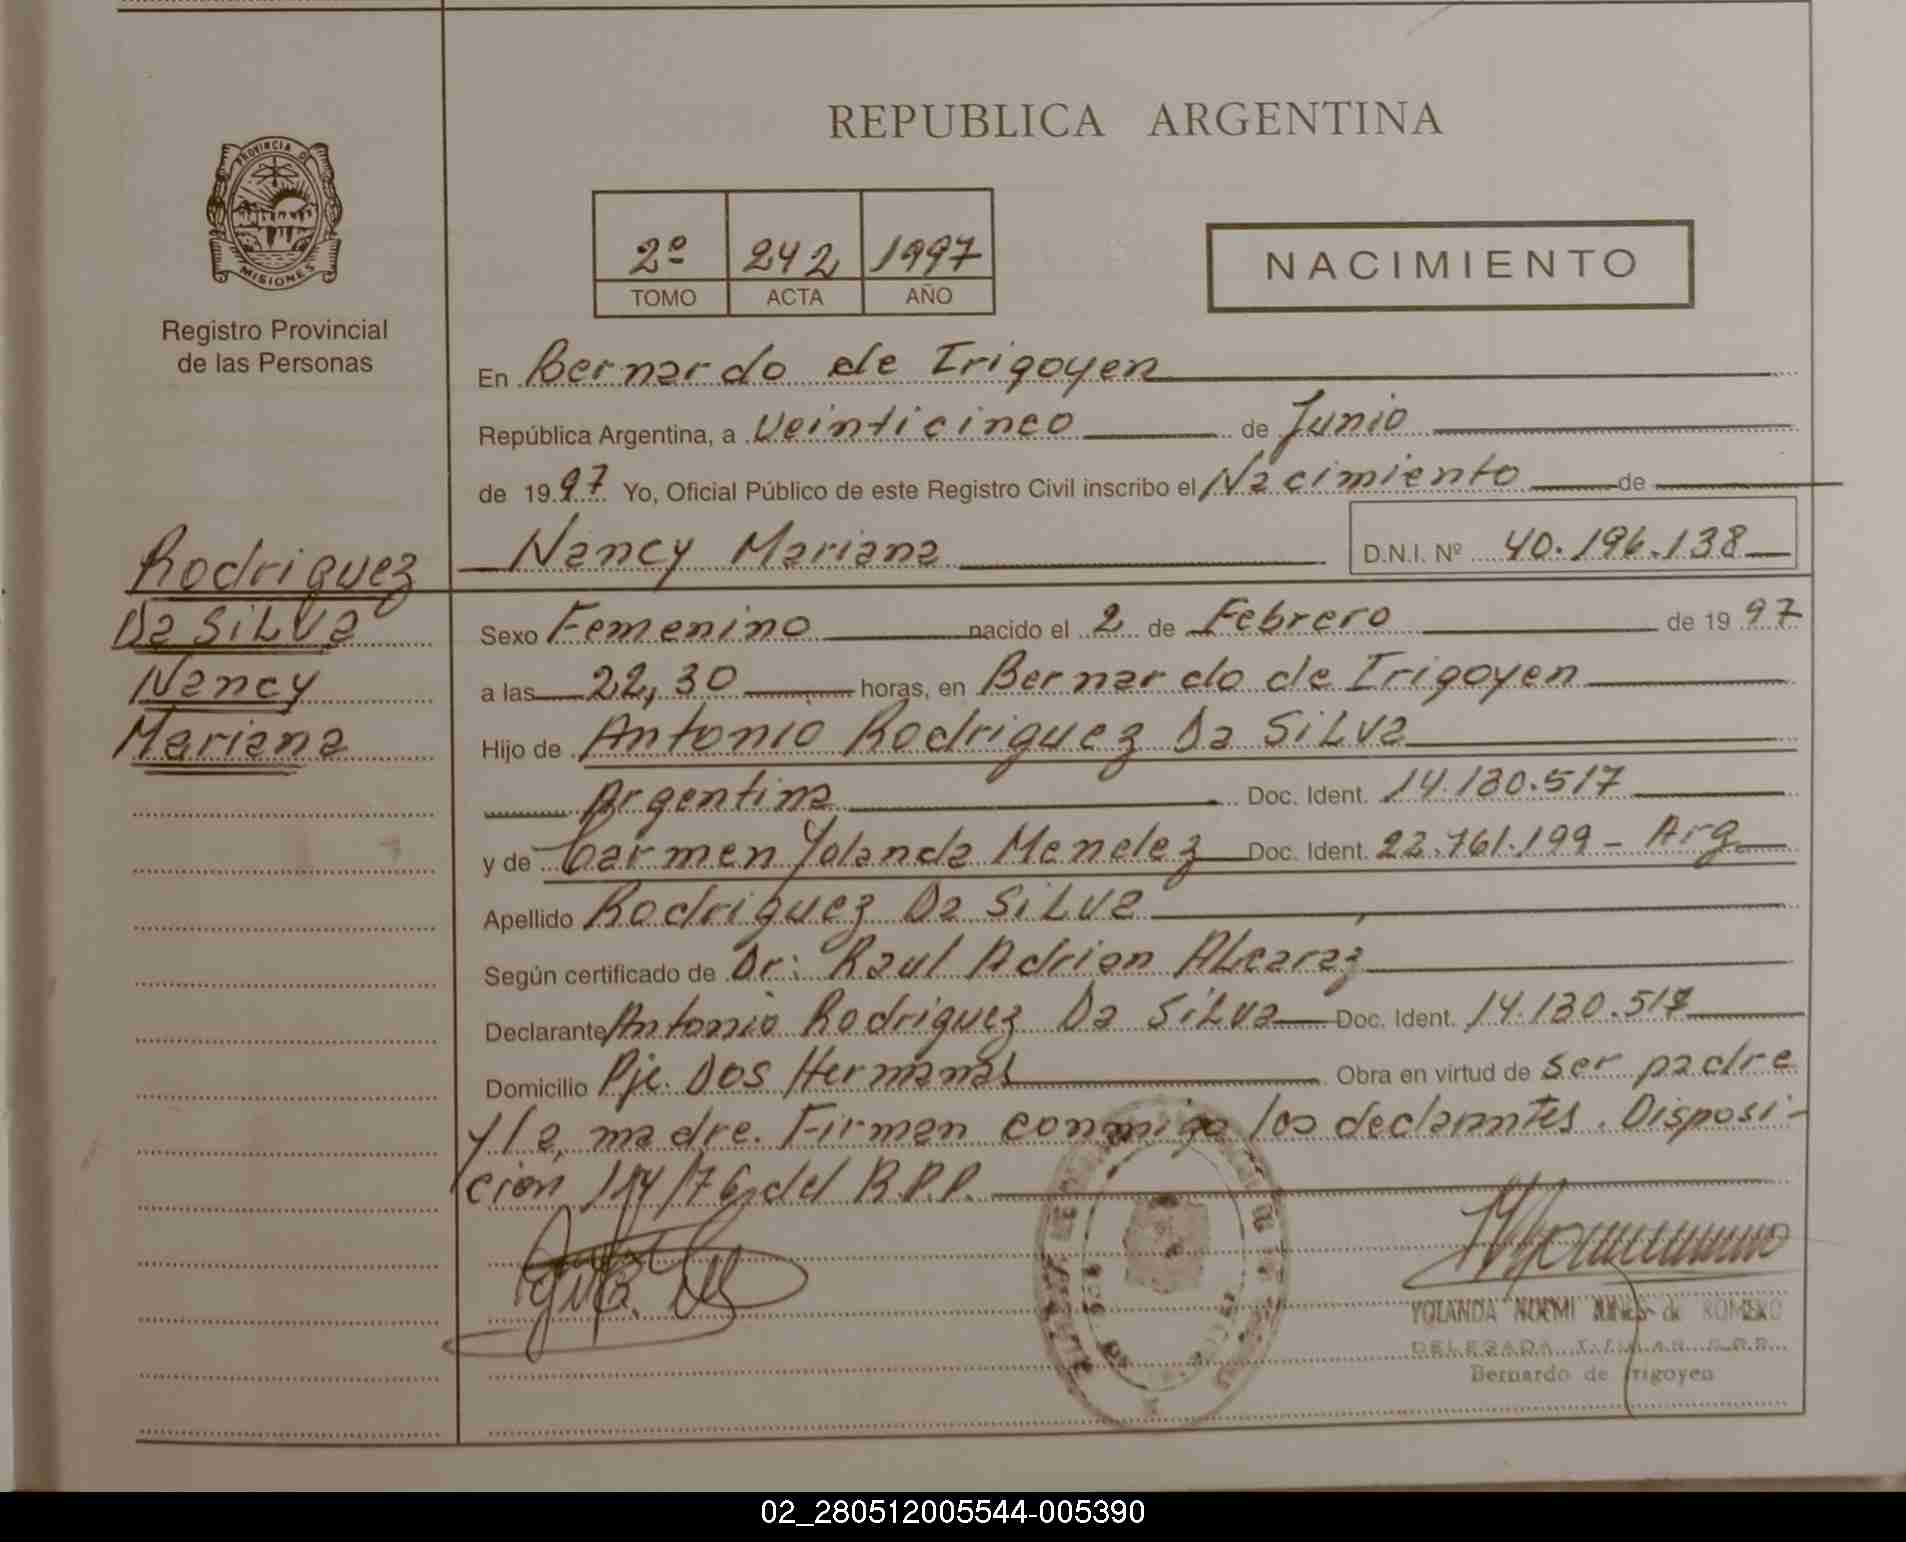 REPUBLICA ARGENTINA
PROVINCIA DE
MISIONES
Registro Provincial
de las Personas
2º 242 1997
TOMO ACTA AÑO
NACIMIENTO
En Bernardo de Irigoyen
República Argentina, a Veinticinco de Junio
de 1997 Yo, Oficial Público de este Registro Civil inscribo el Nacimiento de
Nancy Mariana D.N.I. Nº 40.196.138
Rodriguez
Da SiLVa
Nancy
Mariana
Sexo Femenino nacido el 2 de Febrero de 1997
a las 22,30 horas, en Bernardo de Irigoyen
Hijo de Antonio Rodriguez Da SiLVa
Argentina Doc. Ident. 14.130.517
y de Carmen Yolanda Mendez Doc. Ident. 22.761.199 - Arg.
Apellido Rodriguez Da SiLVa
Según certificado de Dr: Raul Adrian ALcaraz
Declarante Antonio Rodriguez Da SiLVa Doc. Ident. 14.130.517
Domicilio Pje. Dos Hermanas Obra en virtud de ser padre
y la madre. Firman conmigo los declarantes. Disposi-
cion 114/76 del R.P.P.
YOLANDA NOEMI de ROMERO
DELEGADA TITULAR R.P.P.
Bernardo de Irigoyen
02_280512005544-005390